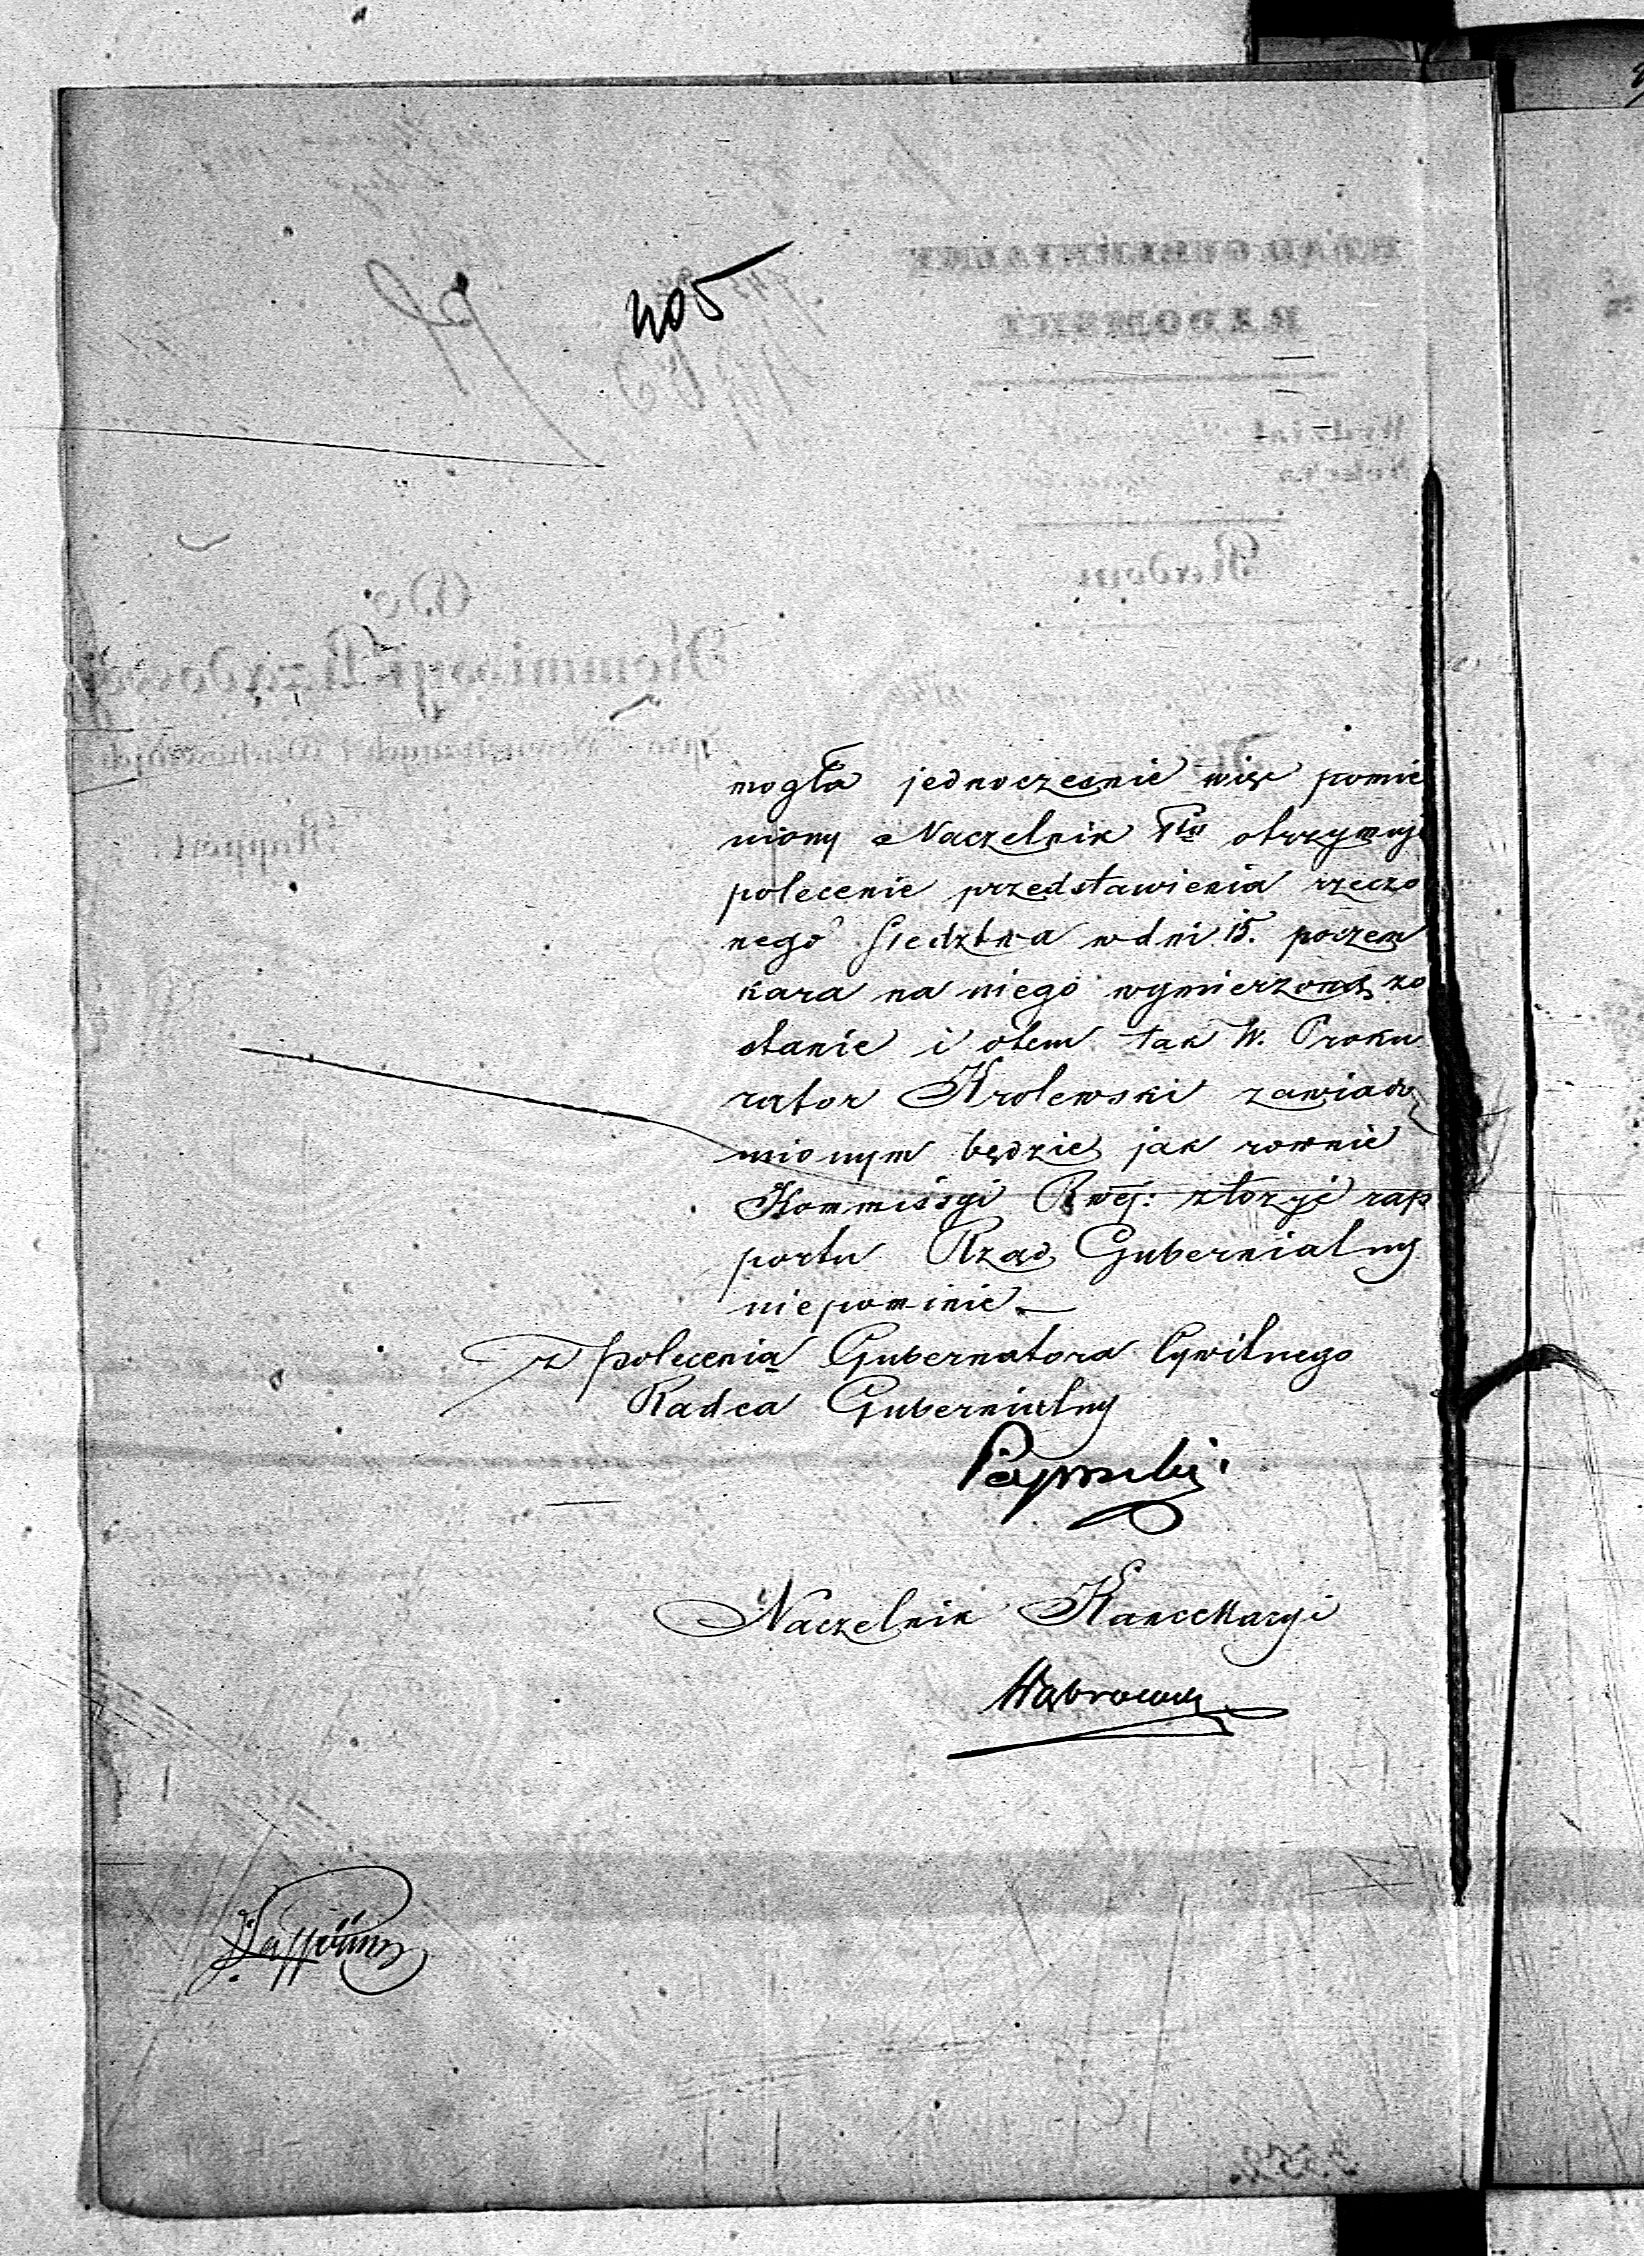 405
mogła jednocześnie więc pomie
niony Naczelnik Ptu otrzymuje
polecenie przedstawienia rzeczo
nego w dni 15. poczem
kara na niego wymierzoną zo
stanie i otem tak W. Proku
rator Krolewski zawiado
mionym będzie jak rownie
Kommissyi Rwej: złożyć rap
portu Rząd Gubernialny
niepominie
z polecenia Gubernatora Cywilnego
Radca Gubernialny
Naczelnik Kancellaryi